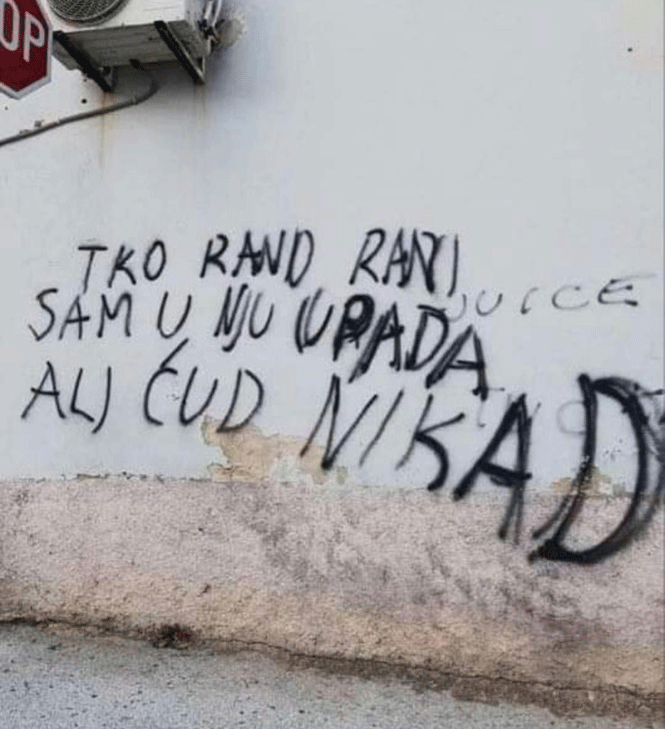 OP
TKO RANO RANI
JUICE
SAM U NJU UPADA
ALI ĆUD NIKAD